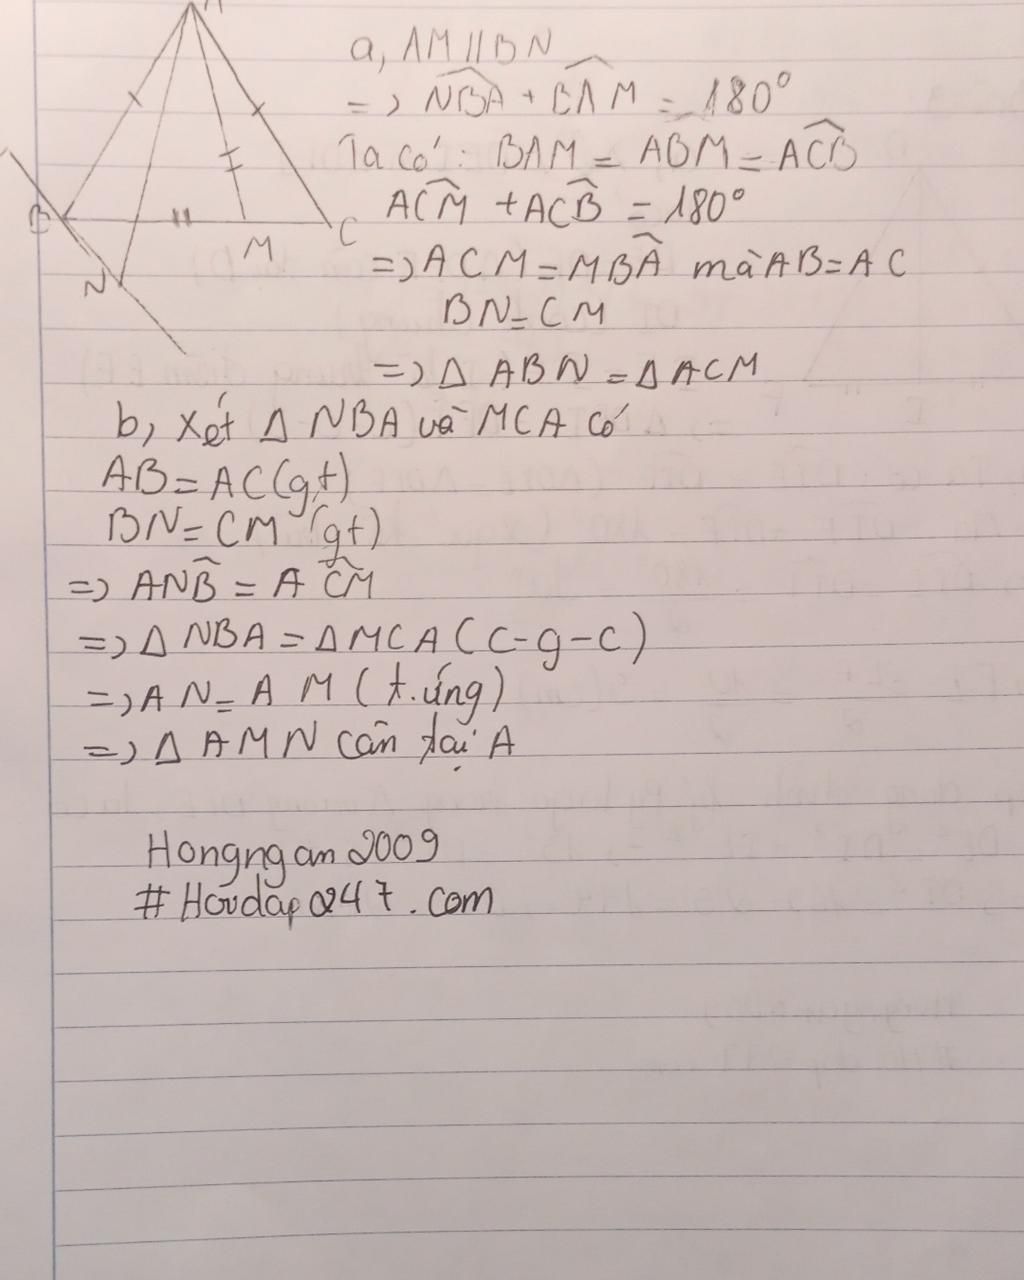 A
B
C
M
N
a, AM // BN
=> NBA + BAM = 180°
Ta có: BAM = ABM = ACB
ACM + ACB = 180°
=> ACM = MBA mà AB = AC
BN = CM
=> Δ ABN = Δ ACM
b, xét Δ NBA và MCA có
AB = AC (gt)
BN = CM (gt)
=> ANB = ACM
=> Δ NBA = Δ MCA (C-g-C)
=> AN = AM (t.ứng)
=> Δ AMN cân tại A
Hongngan2009
#Hoidap247.com